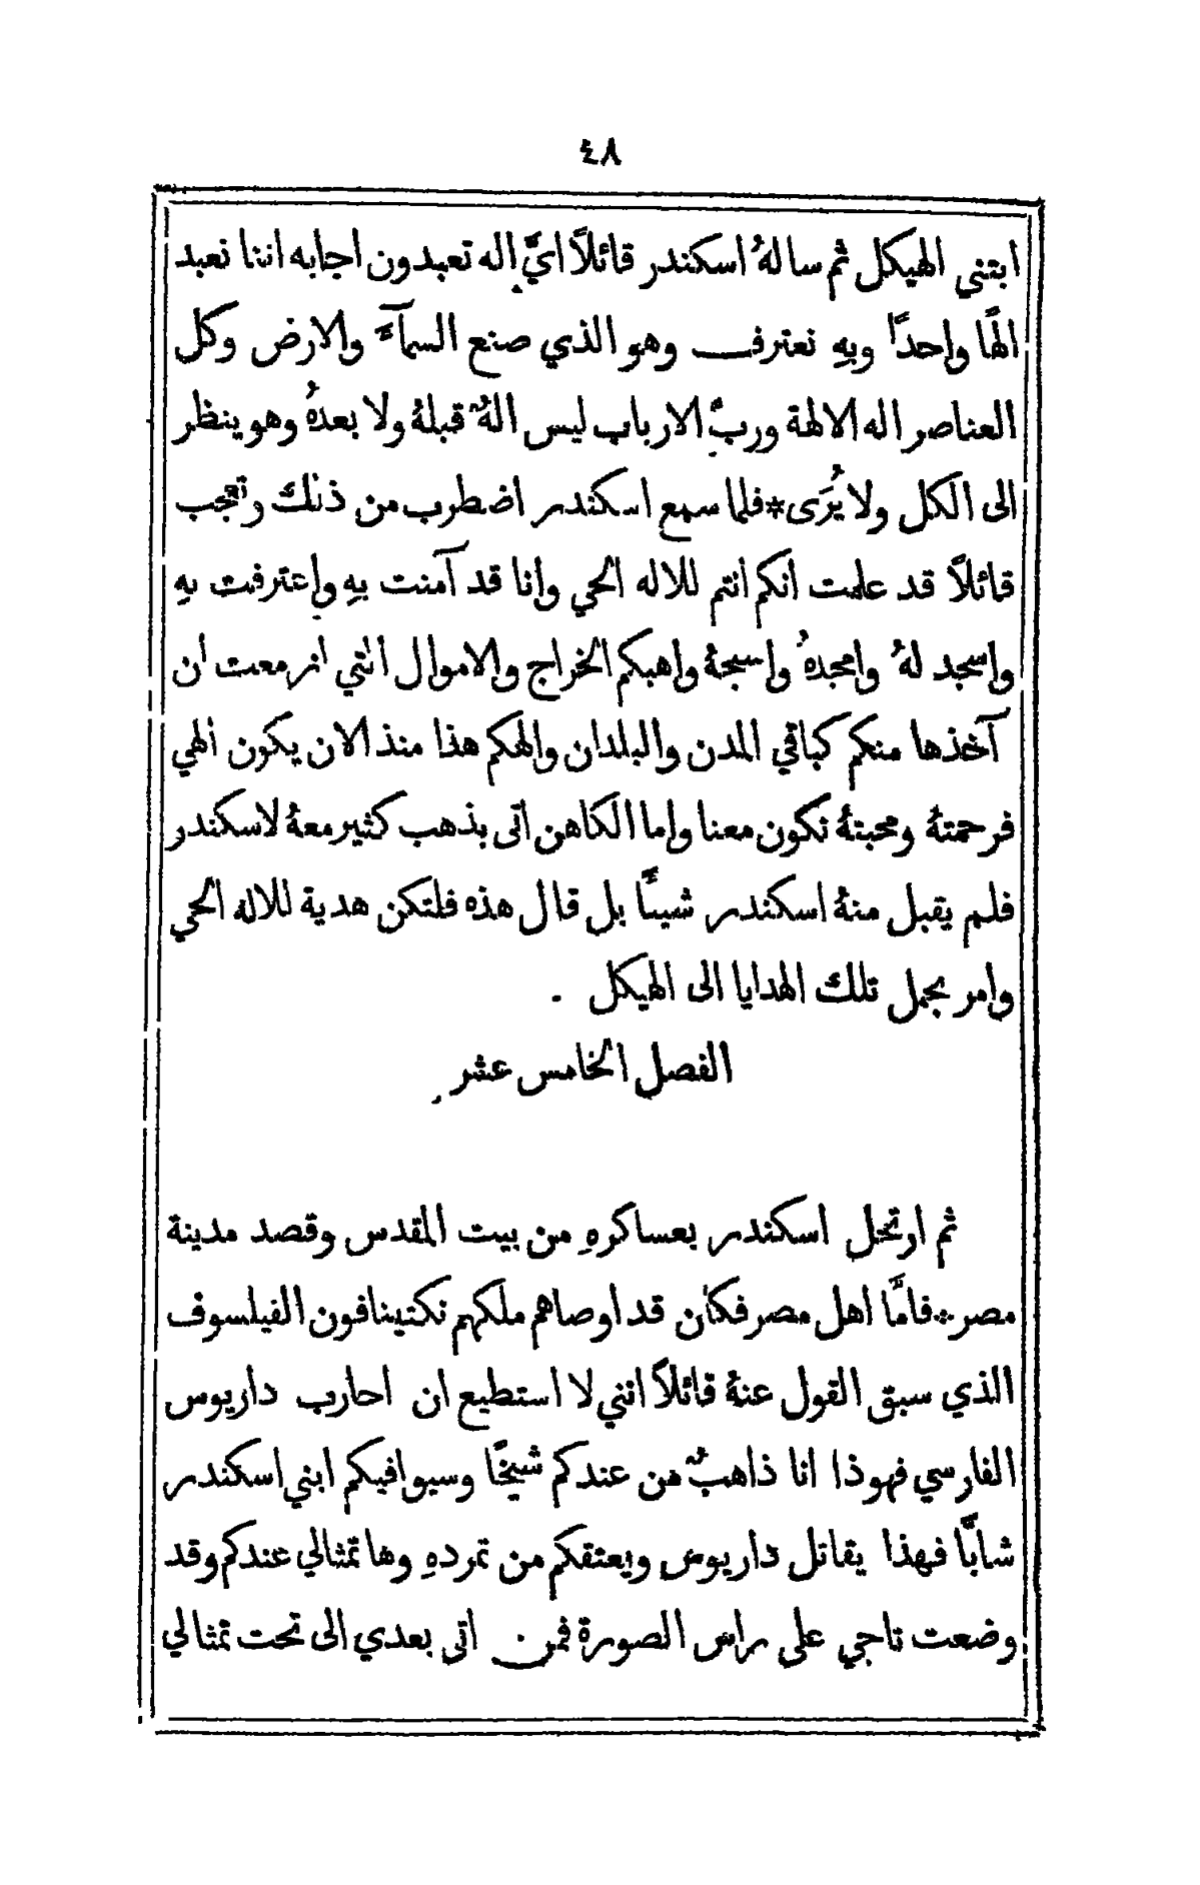 ٤٨
ابتني الهيكل ثم سالهُ اسكندر قائلاً ايَّ إله تعبدون اجابه اننا نعبد
الهًا واحدًا وبهِ نعترف وهو الذي صنع السمآءَ والارض وكل
العناصر اله الالهة وربُّ الارباب ليس الهٌ قبلهُ ولا بعدهُ وهو ينظر
الى الكل ولا يُرَى * فلما سمع اسكندر اضطرب من ذلك وتعجب
قائلاً قد علمت انكم انتم للاله الحي وانا قد آمنت بهِ وإعترفت بهِ
واسجد لهُ وامجدهُ واسبحهُ واهبكم الخراج والاموال التي ازمعت ان
آخذها منكم كباقي المدن والبلدان والهكم هذا منذ الان يكون الهي
فرحمتهُ ومحبتهُ تكون معنا واما الكاهن اتى بذهب كثير معهُ لاسكندر
فلم يقبل منهُ اسكندر شيئًا بل قال هذه فلتكن هدية للاله الحي
وامر بحمل تلك الهدايا الى الهيكل .
الفصل الخامس عشر
ثم ارتحل اسكندر بعساكرهِ من بيت المقدس وقصد مدينة
مصر * فامَّا اهل مصر فكان قد اوصاهم ملكهم نكتينافون الفيلسوف
الذي سبق القول عنهُ قائلاً انني لا استطيع ان احارب داريوس
الفارسي فهوذا انا ذاهبٌ من عندكم شيخًا وسيوافيكم ابني اسكندر
شابًّا فهذا يقاتل داريوس ويعتقكم من تمردهِ وها تمثالي عندكم وقد
وضعت تاجي على راس الصورة فمن اتى بعدي الى تحت تمثالي